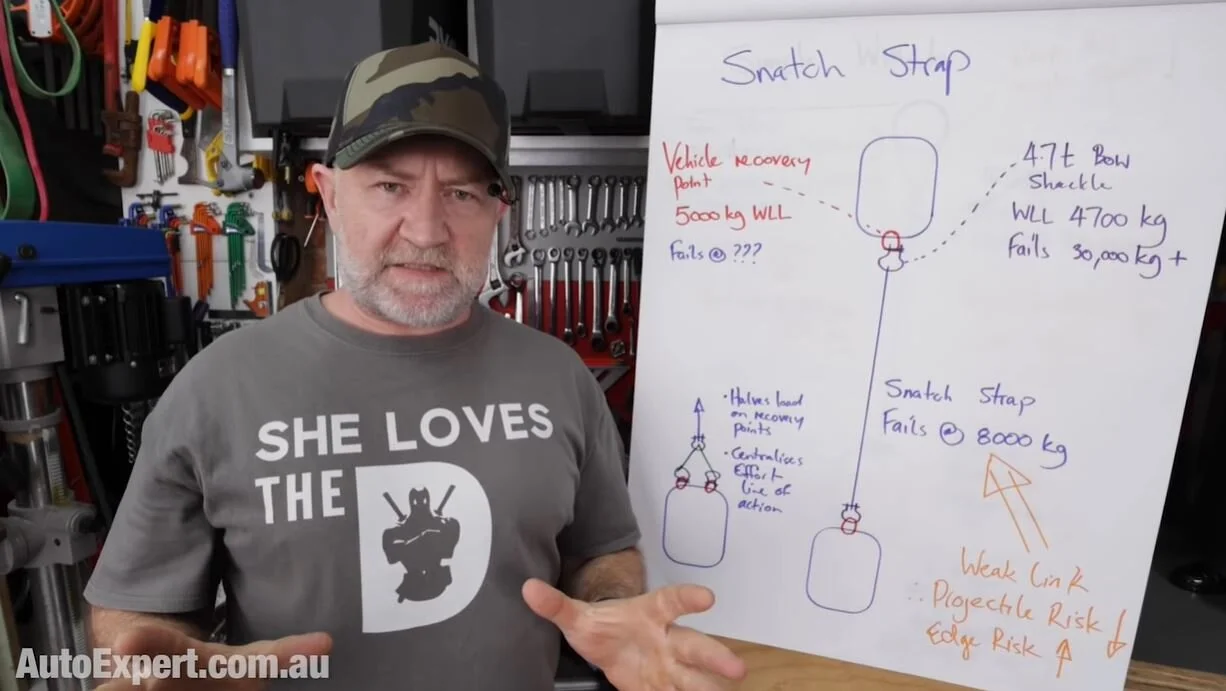 Snatch Strap
Vehicle recovery
point
5000 kg WLL
Fails @ ???
4.7t Bow
Shackle
WLL 4700 kg
Fails 30,000 kg +
• Halves load
on recovery
points
• Centralises
Effort
line of
action
Snatch Strap
Fails @ 8000 kg
Weak Link
∴ Projectile Risk ↓
Edge Risk ↑
SHE LOVES
THE D
AutoExpert.com.au